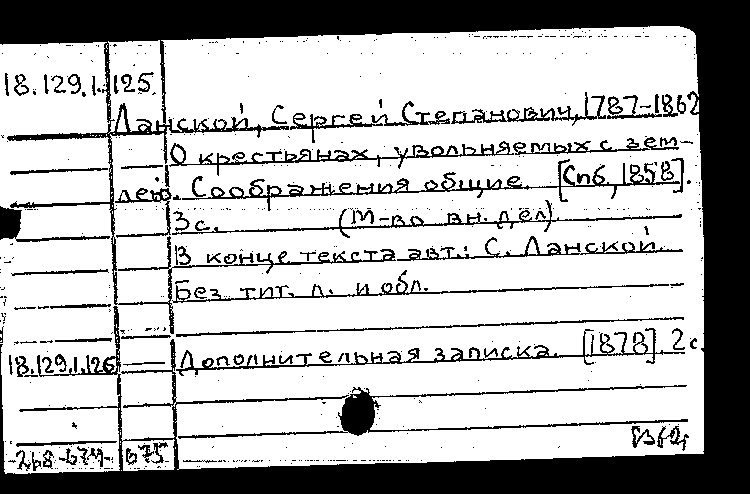 18.129.1. 125
Ланской, Сергей Степанович, 1787-1862
О крестьянах, увольняемых с зем-
лею. Соображения общие. [Спб, 1858].
3с. (М-во вн. дел)
В конце текста авт.: С. Ланской.
Без тит. л. и обл.
18.129.1.126 Дополнительная записка. [1878]. 2 с.
-268-674- 675